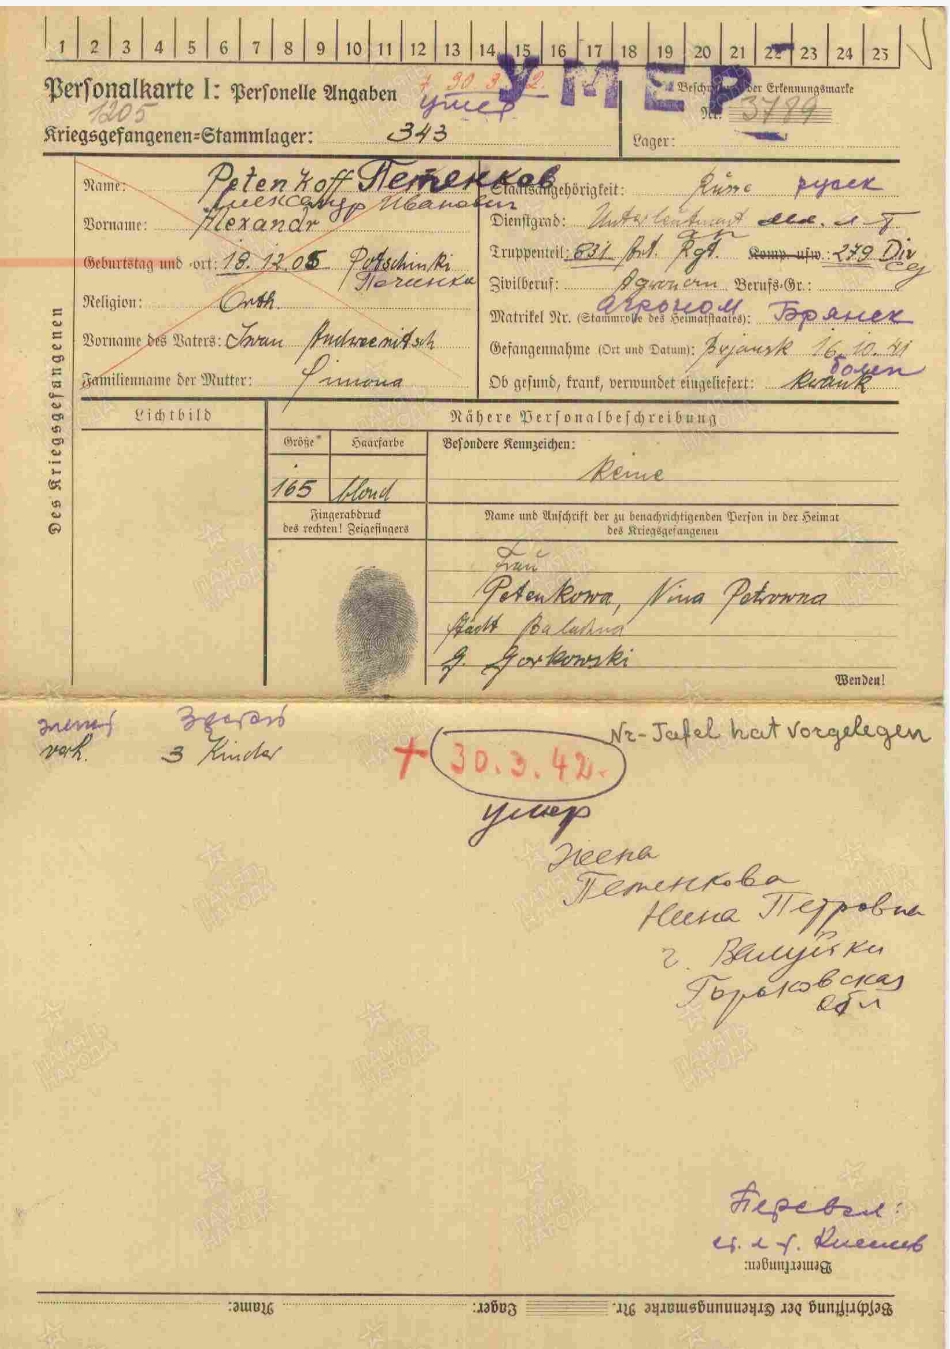 1 2 3 4 5 6 7 8 9 10 11 12 13 14 15 16 17 18 19 20 21 22 23 24 25
Personalkarte I: Personelle Angaben
† 30.3.42.
умер
УМЕР
Beschriftung der Erkennungsmarke
Nr. 3789
1205
Kriegsgefangenen=Stammlager: 343
Lager:
Des Kriegsgefangenen
Name: Petenkoff Петенков
Александр Иванович
Vorname: Alexandr
Geburtstag und =ort: 18.12.05 Potschinki
Починки
Religion: Orth.
Vorname des Vaters: Iwan
Familienname der Mutter: Simona
Staatsangehörigkeit: Russe русск
Dienstgrad: Unterleutnant мл. л-т
Truppenteil: 831 Art. Rgt. Komp. usw.: 279 Div
ап
Zivilberuf: Agronom Berufs-Gr.:
агроном
Matrikel Nr. (Stammrolle des Heimatstaates): Брянск
Gefangennahme (Ort und Datum): Brjansk 16.10.41
болен
Ob gesund, krank, verwundet eingeliefert: krank
Lichtbild
Nähere Personalbeschreibung
Größe Haarfarbe
165 blond
Besondere Kennzeichen:
keine
Fingerabdruck
des rechten! Zeigefingers
Name und Anschrift der zu benachrichtigenden Person in der Heimat
des Kriegsgefangenen
Frau
Petenkowa, Nina Petrowna
Stadt Balachna
G. Gorkowski
Wenden!
verh. 3 Kinder
† 30.3.42.
умер
Nr-Tafel hat vorgelegen
Жена
Петенкова
Нина Петровна
г. Валуйки
Горьковская
обл
Перевел:
ст. л-т.
Bemerkungen:
Beschriftung der Erkennungsmarke Nr. Lager: Name: